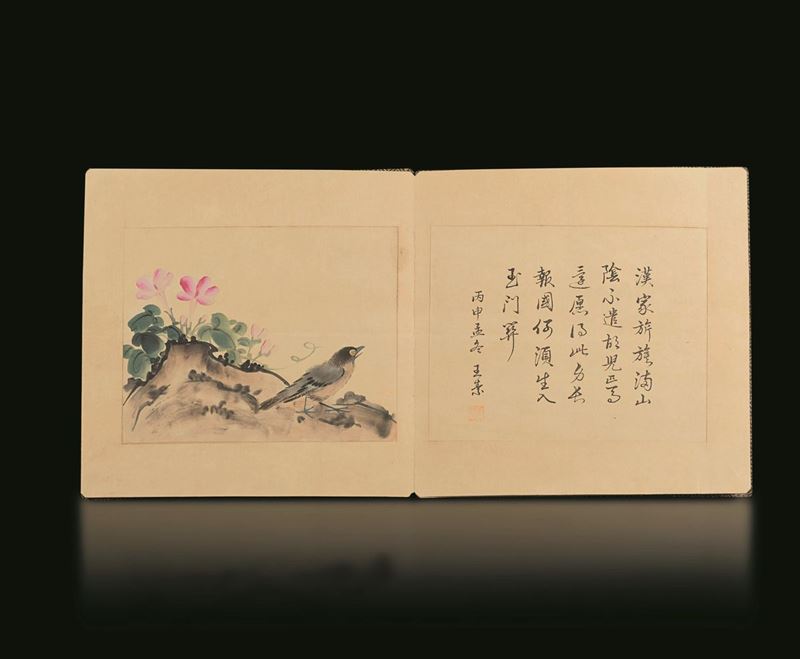 漢家旌旗滿山
陰不遣胡兒匹馬
還愿得此身長
報國何須生入
玉门関
丙申孟冬 王荣